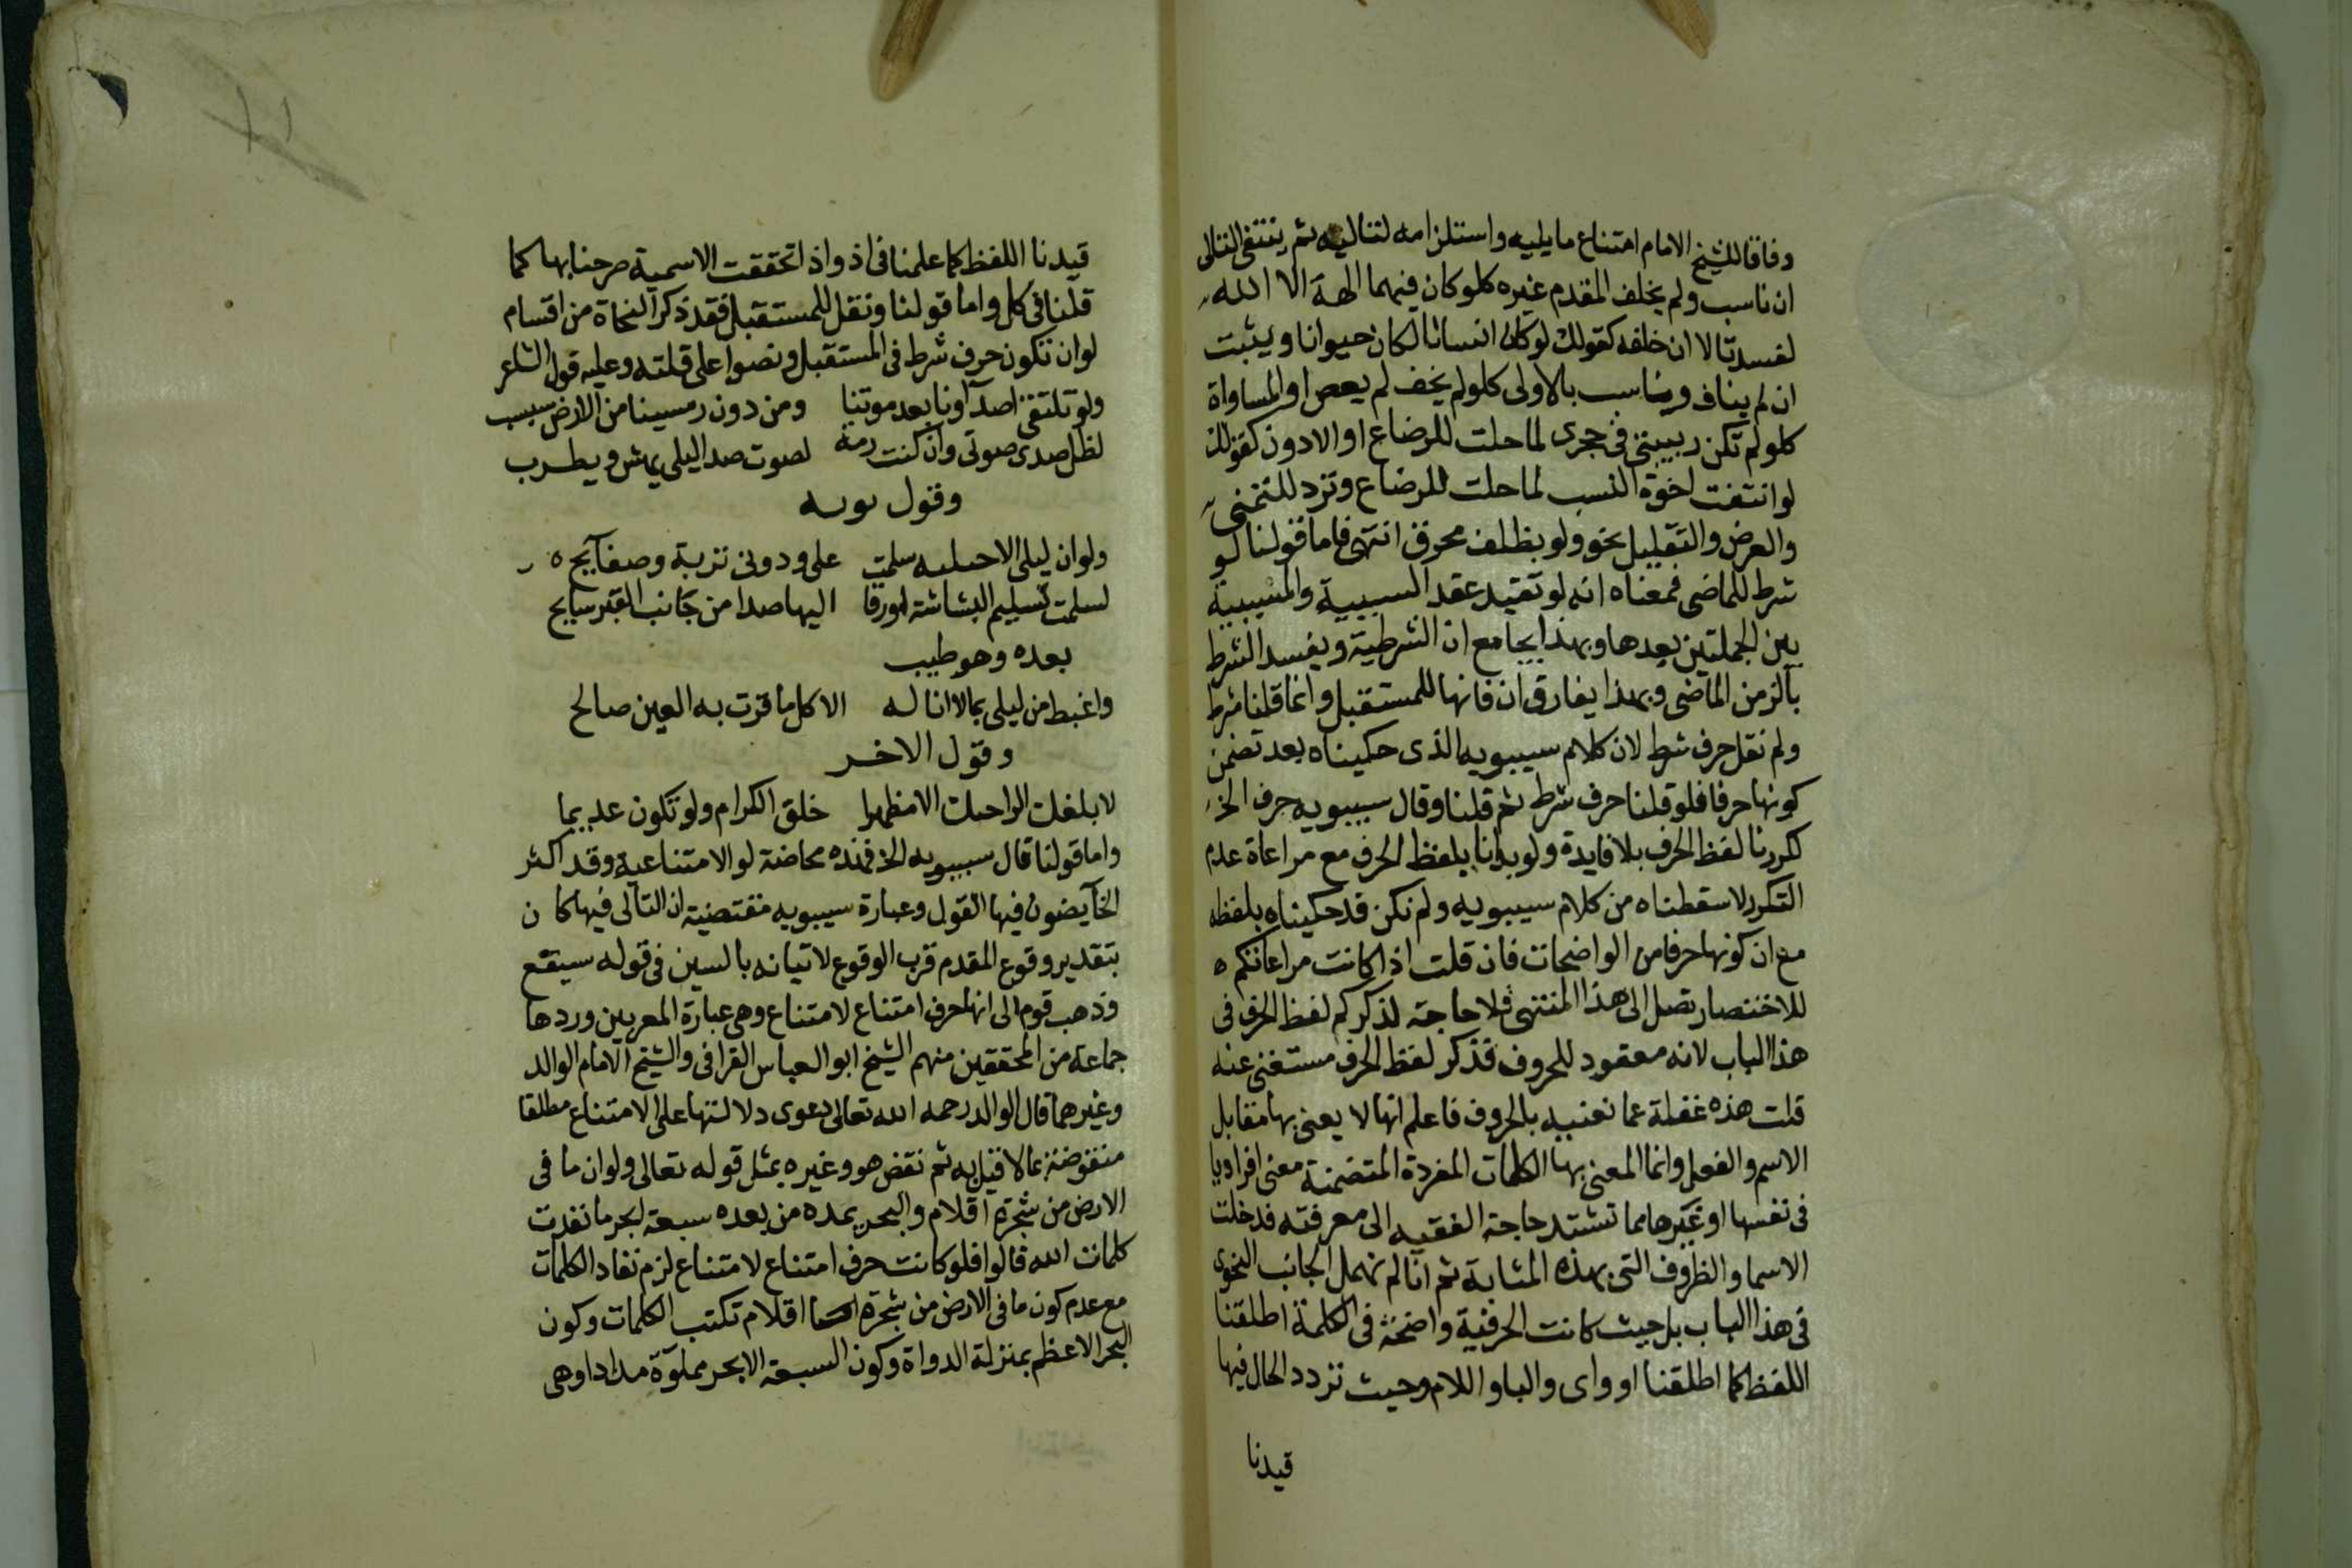 وفاقا للشيخ الامام امتناع ما يليه واستلزامه لتاليه ثم ينتفي التالى
ان ناسب ولم يخلف المقدم غيره كلو كان فيهما الهة الا الله
لفسدتا لا ان خلفه كقولك لو كان انسانا لكان حيوانا ويثبت
ان لم يناف وناسب بالاولى كلو لم يخف لم يعص او المساواة
كلو لم تكن ربيبتى فى حجرى لما حلت للرضاع او الادون كقولك
لو انتفت اخوة النسب لما حلت للرضاع وترد للتمنى
والعرض والتقليل نحو ولو بظلف محرق انتهى فاما قولنا لو
شرط للماضى فمعناه انه لو تفيد عقد السببية والمسببية
بين الجملتين بعدها وبهذا يجامع ان الشرطية ويفسد الشرط
بالزمن الماضى وبهذا يفارق ان فانها للمستقبل وانما قلنا شرط
ولم نقل حرف شرط لان كلام سيبويه الذى حكيناه بعد تضمن
كونها حرفا فلو قلنا حرف شرط ثم قلنا وقال سيبويه حرف الخ
لكررنا لفظ الحرف بلا فايدة ولو بدانا بلفظ الحرف مع مراعاة عدم
التكرر لاسقطناه من كلام سيبويه ولم نكن قد حكيناه بلفظه
مع ان كونها حرفا من الواضحات فان قلت اذا كانت مراعاتكم
للاختصار تصل الى هذا المنتهى فلا حاجة لذكركم لفظ الحرف فى
هذا الباب لانه معقود للحروف فذكر لفظ الحرف مستغنى عنه
قلت هذه غفلة عما نعنيه بالحروف فاعلم انها لا يعنى بها مقابل
الاسم والفعل وانما المعنى بها الكلمات المفردة المتضمنة معنى افراديا
فى نفسها او غيرها مما تشتد حاجة الفقيه الى معرفته فدخلت
الاسما والظروف التى بهذه المثابة ثم انا لم نهمل الجانب النحوى
فى هذا الباب بل حيث كانت الحرفية واضحة فى الكلمة اطلقنا
اللفظ كما اطلقنا او واى والبا واللام وحيث تردد الحال فيها
قيدنا
قيدنا اللفظ كما علمنا فى اذ واذا تحققت الاسمية صرحنا بها كما
قلنا فى كل واما قولنا ونقل للمستقبل فقد ذكر النحاة من اقسام
لو ان تكون حرف شرط فى المستقبل ونصوا على قلته وعليه قول الشاعر
ولو تلتقى اصداونا بعد موتنا ومن دون رمسينا من الارض سبسب
لظل صدى صوتى وان كنت رمة لصوت صدا ليلى يهش ويطرب
وقول توبه
ولو ان ليلى الاخيليه سلمت على ودونى تربة وصفايح
لسلمت تسليم البشاشة او زقا اليها صدا من جانب القبر صايح
بعده وهو طيب
واغبط من ليلى بما لا اناله الا كل ما قرت به العين صالح
وقول الاخر
لا يلفك الراجيك الا مظهرا خلق الكرام ولو تكون عديما
واما قولنا قال سيبويه الخ فهذه محاضة لو الامتناعية وقد اكثر
الخايضون فيها القول وعبارة سيبويه مقتضية ان التالى فيها كان
بتقدير وقوع المقدم قرب الوقوع لاتيانه بالسين فى قوله سيقع
وذهب قوم الى انها حرف امتناع لامتناع وهى عبارة المعربين وردها
جماعة من المحققين منهم الشيخ ابو العباس القرافى والشيخ الامام الوالد
وغيرهما قال الوالد رحمه الله تعالى دعوى دلالتها على الامتناع مطلقا
منقوضة بما لا قبل به ثم نقض هو وغيره بمثل قوله تعالى ولو ان ما فى
الارض من شجرة اقلام والبحر يمده من بعده سبعة ابحر ما نفدت
كلمات الله قالوا فلو كانت حرف امتناع لامتناع لزم نفاد الكلمات
مع عدم كون ما فى الارض من شجرة اقلام تكتب الكلمات وكون
البحر الاعظم بمنزلة الدواة وكون السبعة الابحر مملوة مدادا وهى